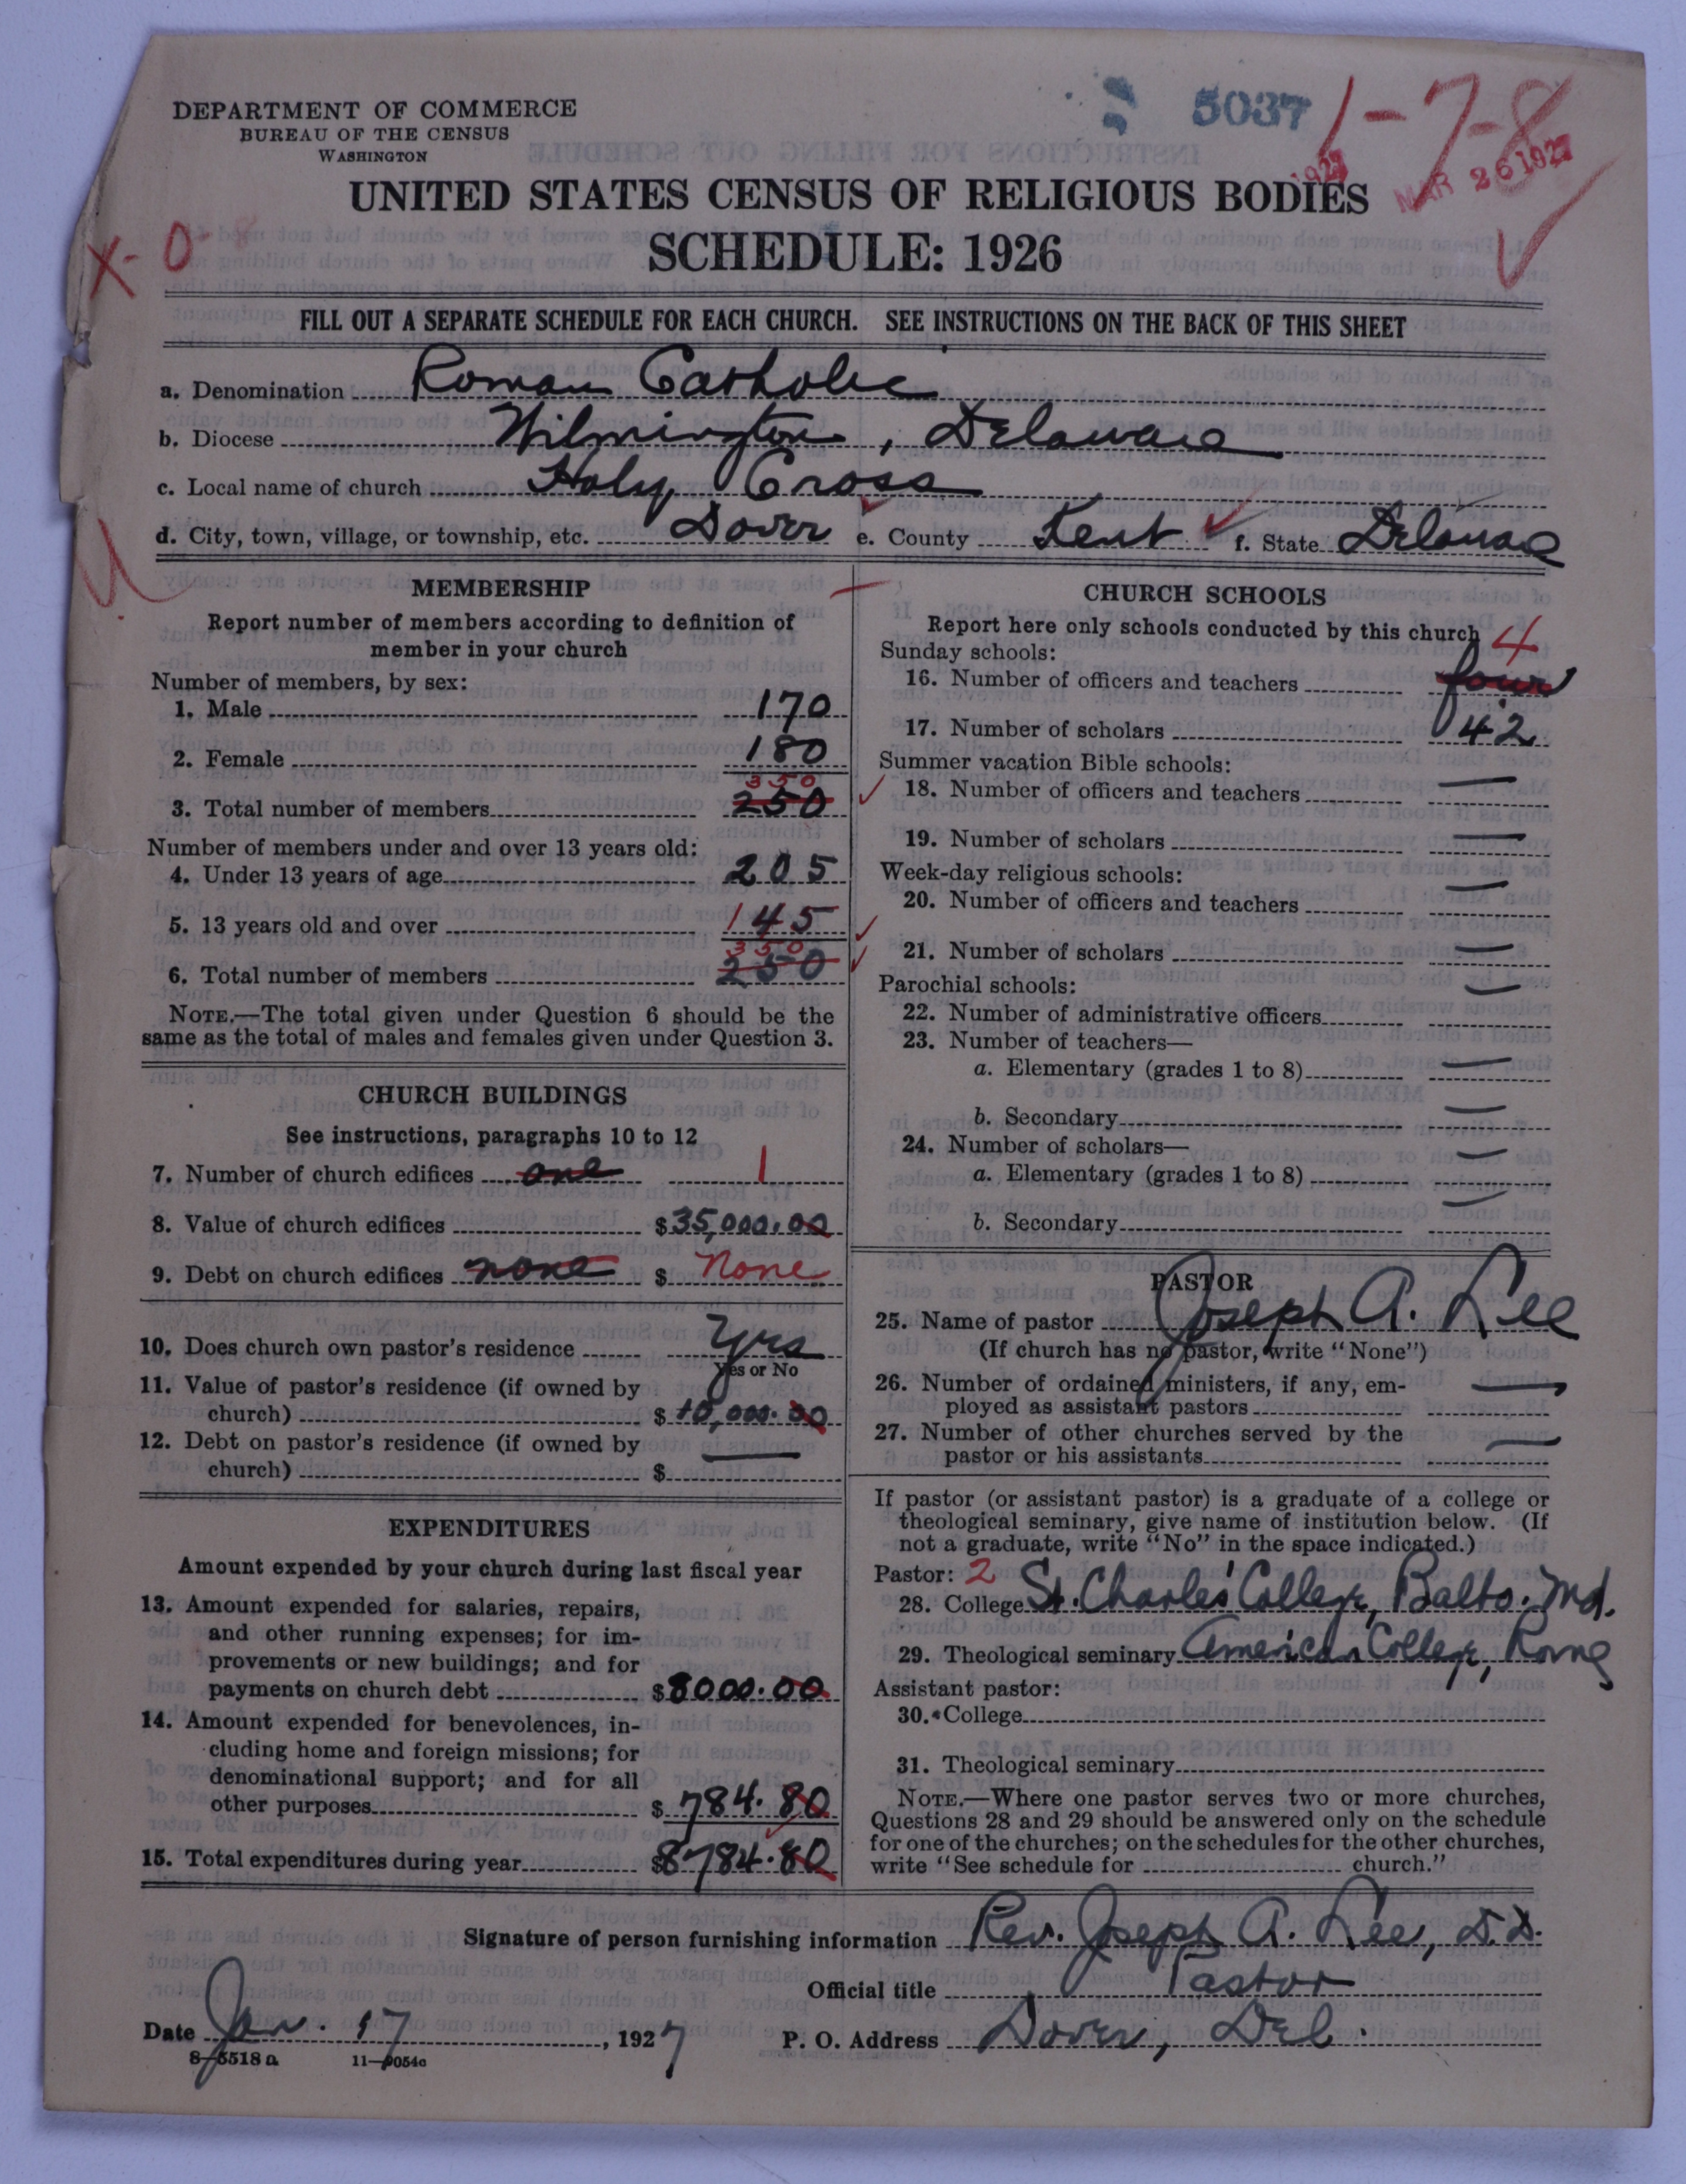 DEPARTMENT OF COMMERCE
BUREAU OF THE CENSUS
WASHINGTON
5037
1-7-8
1927
MAR 26 1927
UNITED STATES CENSUS OF RELIGIOUS BODIES
SCHEDULE: 1926
X-0
FILL OUT A SEPARATE SCHEDULE FOR EACH CHURCH. SEE INSTRUCTIONS ON THE BACK OF THIS SHEET
a. Denomination Roman Catholic
b. Diocese Wilmington, Delaware
c. Local name of church Holy Cross
d. City, town, village, or township, etc. Dover e. County Kent f. State Delaware
MEMBERSHIP
Report number of members according to definition of
member in your church
Number of members, by sex:
1. Male 170
2. Female 180
350
3. Total number of members 250
Number of members under and over 13 years old:
4. Under 13 years of age 205
5. 13 years old and over 145
350
6. Total number of members 250
NOTE.—The total given under Question 6 should be the
same as the total of males and females given under Question 3.
CHURCH BUILDINGS
See instructions, paragraphs 10 to 12
7. Number of church edifices one 1
8. Value of church edifices $35,000.00
9. Debt on church edifices none $ None
10. Does church own pastor's residence Yes
Yes or No
11. Value of pastor's residence (if owned by
church) $10,000.00
12. Debt on pastor's residence (if owned by
church) $ —
EXPENDITURES
Amount expended by your church during last fiscal year
13. Amount expended for salaries, repairs,
and other running expenses; for im-
provements or new buildings; and for
payments on church debt $8000.00
14. Amount expended for benevolences, in-
cluding home and foreign missions; for
denominational support; and for all
other purposes $784.80
15. Total expenditures during year $8784.80
CHURCH SCHOOLS
Report here only schools conducted by this church
Sunday schools: 4
16. Number of officers and teachers four
17. Number of scholars 42
Summer vacation Bible schools:
18. Number of officers and teachers —
19. Number of scholars —
Week-day religious schools:
20. Number of officers and teachers —
21. Number of scholars —
Parochial schools:
22. Number of administrative officers —
23. Number of teachers—
a. Elementary (grades 1 to 8) —
b. Secondary —
24. Number of scholars—
a. Elementary (grades 1 to 8) —
b. Secondary —
PASTOR
25. Name of pastor Joseph A. Lee
(If church has no pastor, write "None")
26. Number of ordained ministers, if any, em-
ployed as assistant pastors —
27. Number of other churches served by the
pastor or his assistants —
If pastor (or assistant pastor) is a graduate of a college or
theological seminary, give name of institution below. (If
not a graduate, write "No" in the space indicated.)
Pastor: 2
28. College St. Charles' College, Balto. Md.
29. Theological seminary American College, Rome
Assistant pastor:
30. College
31. Theological seminary
NOTE.—Where one pastor serves two or more churches,
Questions 28 and 29 should be answered only on the schedule
for one of the churches; on the schedules for the other churches,
write "See schedule for church."
Signature of person furnishing information Rev. Joseph A. Lee, D.D.
Official title Pastor
Date Jan. 17, 1927 P. O. Address Dover, Del.
8-5518 a 11-9054a